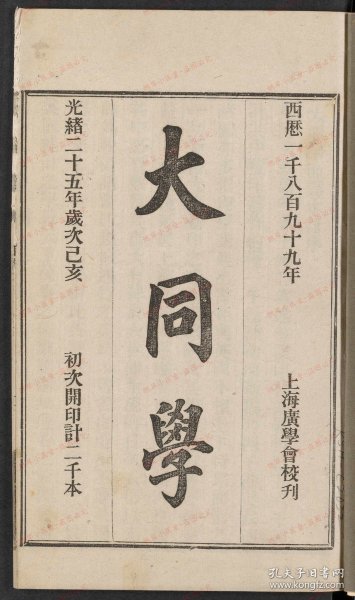 西歷一千八百九十九年
上海廣學會校刋
大同學
光緒二十五年歲次己亥
初次開印計二千本
孔夫子旧书网